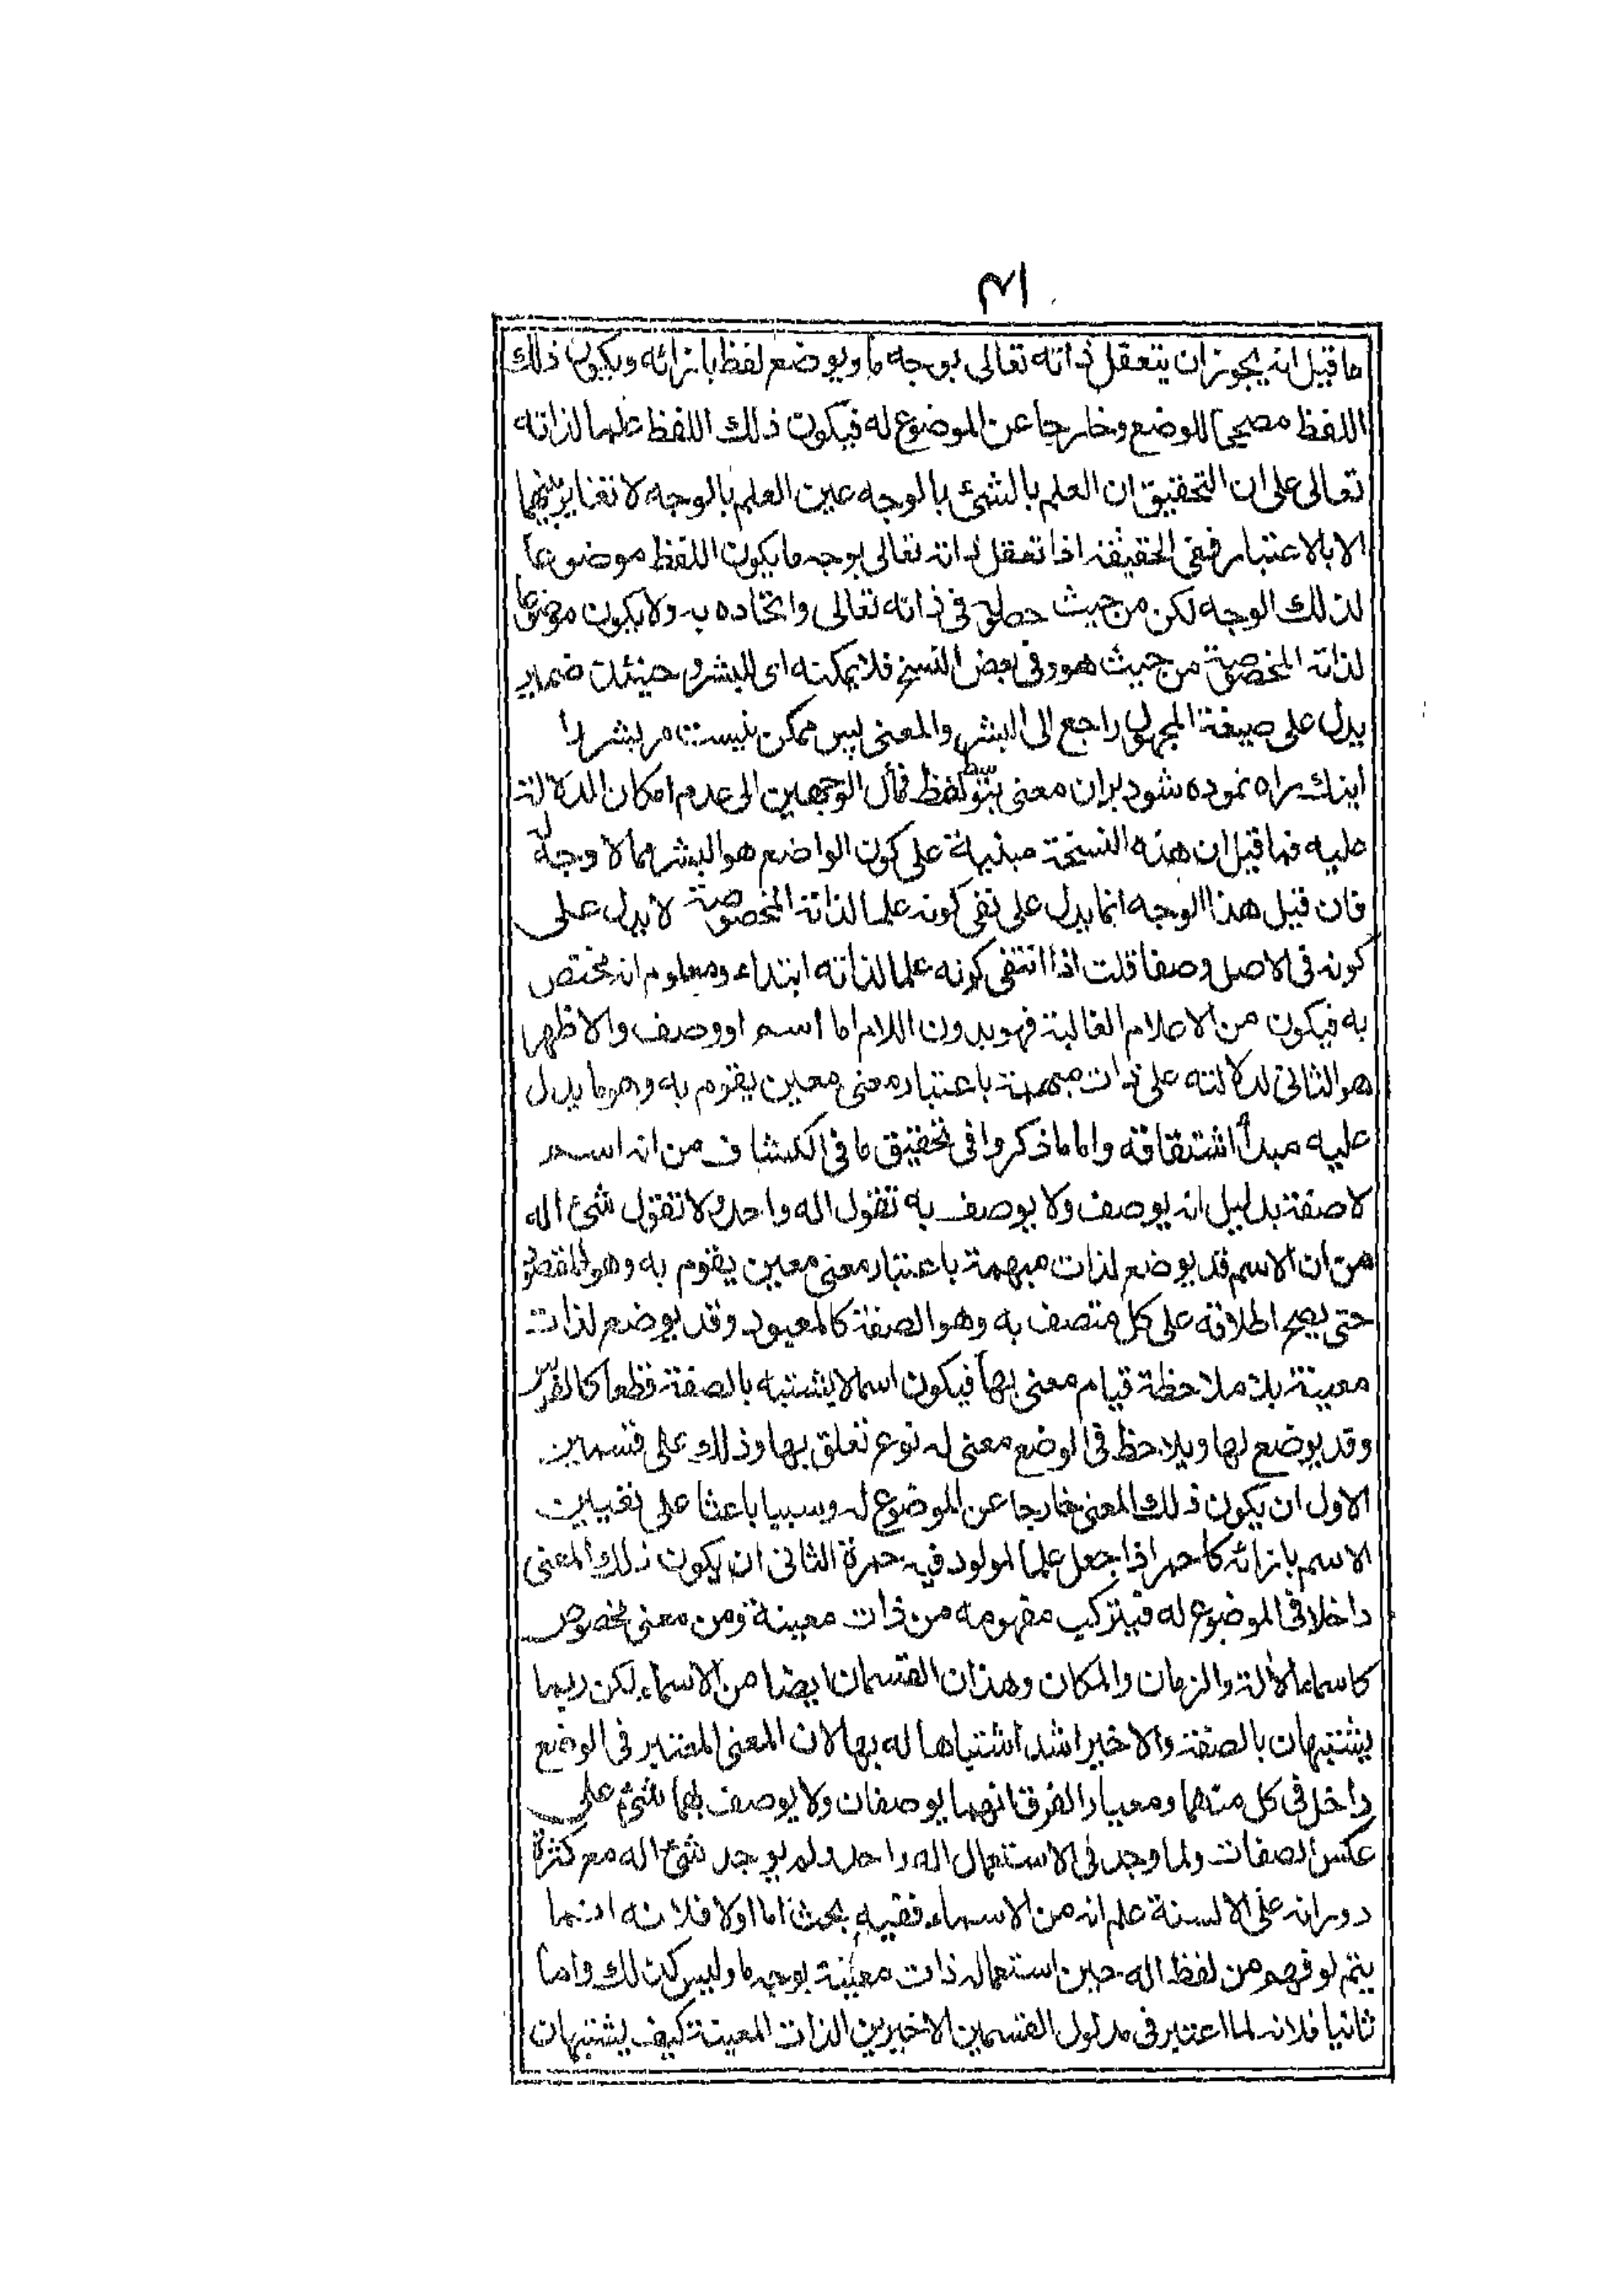 ٣١
ما قيل انه يجوز ان يتعقل ذاته تعالى بوجه ما ويوضع لفظ بازائه ويكون ذلك
اللفظ مصححا للوضع وخارجا عن الموضوع له فيكون ذلك اللفظ علما لذاته
تعالى على ان التحقيق ان العلم بالشئ بالوجه عين العلم بالوجه لا تغاير بينهما
الا بالاعتبار ففى الحقيقة اذا تعقل ذاته تعالى بوجه ما يكون اللفظ موضوعا
لذلك الوجه لكن من حيث حصوله فى ذاته تعالى واتحاده به ولا يكون موضوعا
لذاته المخصوصة من حيث هو وفى بعض النسخ فلا يمكنه اى للبشر وحينئذ ضمير
يدل على صيغة المجهول راجع الى البشر والمعنى پس ممكن نيست مر بشر را
اينك راه نموده شود بران معنى بتوسط لفظ فمآل الوجهين الى عدم امكان الدلالة
عليه فما قيل ان هذه النسخة مبنية على كون الواضع هو البشر مما لا وجه له
فان قيل هذا الوجه انما يدل على نفى كونه علما لذاته المخصوصة لا يدل على
كونه فى الاصل وصفا قلت اذا انتفى كونه علما لذاته ابتداء ومعلوم انه مختص
به فيكون من الاعلام الغالبة فهو بدون اللام اما اسم او وصف والاظهر
هو الثانى لدلالته على ذات مبهمة باعتبار معنى معين يقوم به وهو ما يدل
عليه مبدأ اشتقاقه واما ما ذكروا فى تحقيق ما فى الكشاف من انه اسم
لا صفة بدليل انه يوصف ولا يوصف به تقول اله واحد ولا تقول شئ اله
من ان الاسم قد يوضع لذات مبهمة باعتبار معنى معين يقوم به وهو المقصود
حتى يصح اطلاقه على كل متصف به وهو الصفة كالمعبود وقد يوضع لذات
معينة بلا ملاحظة قيام معنى بها فيكون اسما لا يشتبه بالصفة قطعا كالفرس
وقد يوضع لها ويلاحظ فى الوضع معنى له نوع تعلق بها وذلك على قسمين
الاول ان يكون ذلك المعنى خارجا عن الموضوع له وسببا باعثا على تعيين
الاسم بازائه كاحمر اذا جعل علما لمولود فيه حمرة الثانى ان يكون ذلك المعنى
داخلا فى الموضوع له فيتركب مفهومه من ذات معينة ومن معنى مخصوص
كاسماء الآلة والزمان والمكان وهذان القسمان ايضا من الاسماء لكن ربما
يشتبهان بالصفة والاخير اشد اشتباها له بها لان المعنى المعتبر فى الوضع
داخل فى كل منهما ومعيار الفرق انهما يوصفان ولا يوصف بهما شئ على
عكس الصفات ولما وجد فى الاستعمال اله واحد ولم يوجد شئ اله مع كثرة
دورانه على الالسنة علم انه من الاسماء ففيه بحث اما اولا فلانه انما
يتم لو فهم من لفظ اله حين استعماله ذات معينة بوجه ما وليس كذلك واما
ثانيا فلانه لما اعتبر فى مدلول القسمين الاخيرين الذات المعينة كيف يشتبهان